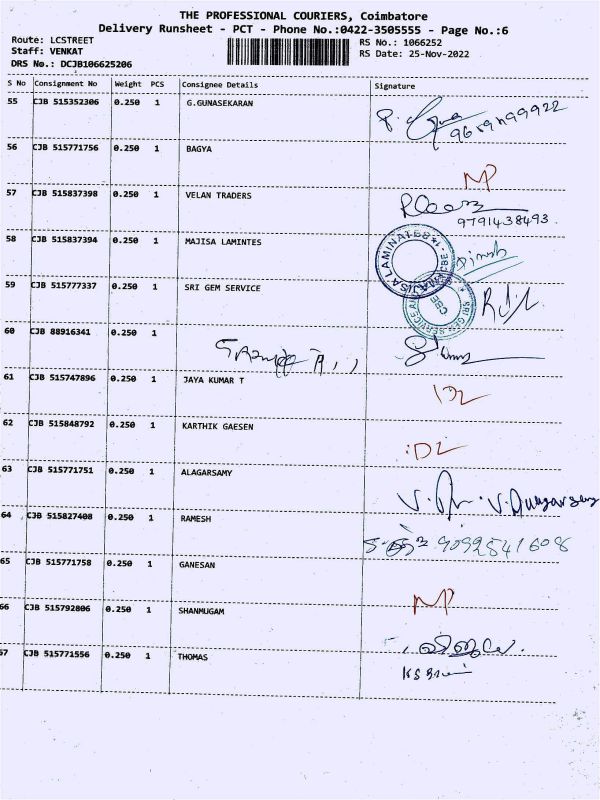 THE PROFESSIONAL COURIERS, Coimbatore
Delivery Runsheet - PCT - Phone No.:0422-3505555 - Page No.:6
Route: LCSTREET
Staff: VENKAT
DRS No.: DCJB106625206
RS No.: 1066252
RS Date: 25-Nov-2022
S No Consignment No Weight PCS Consignee Details Signature
55 CJB 515352306 0.250 1 G.GUNASEKARAN
56 CJB 515771756 0.250 1 BAGYA
NP
57 CJB 515837398 0.250 1 VELAN TRADERS
9791438493
58 CJB 515837394 0.250 1 MAJISA LAMINTES
Dinesh
59 CJB 515777337 0.250 1 SRI GEM SERVICE
CBE
60 CJB 88916341 0.250 1
61 CJB 515747896 0.250 1 JAYA KUMAR T
62 CJB 515848792 0.250 1 KARTHIK GAESEN
63 CJB 515771751 0.250 1 ALAGARSAMY
64 CJB 515827408 0.250 1 RAMESH
9092541608
65 CJB 515771758 0.250 1 GANESAN
NP
66 CJB 515792806 0.250 1 SHANMUGAM
67 CJB 515771556 0.250 1 THOMAS